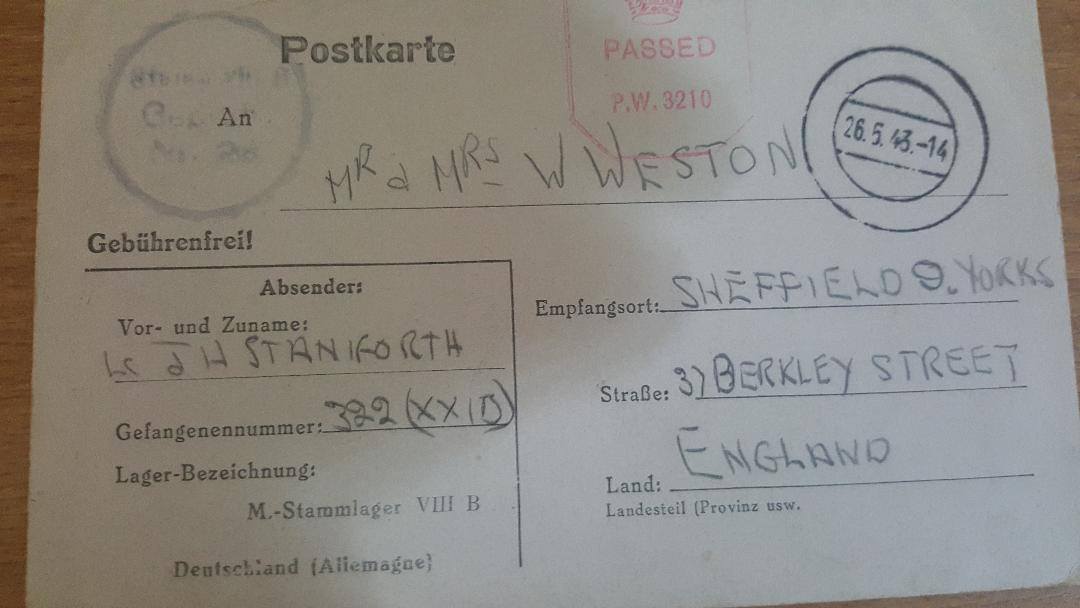 Postkarte
PASSED
P.W. 3210
An
26.5.43.-14
MR & MRS W WESTON
Gebührenfrei!
Absender:
Vor- und Zuname:
J H STANIFORTH
Gefangenennummer: 322 (XXID)
Lager-Bezeichnung:
M.-Stammlager VIII B
Deutschland (Allemagne)
Empfangsort: SHEFFIELD 9. YORKS
Straße: 31 BERKLEY STREET
ENGLAND
Land:
Landesteil (Provinz usw.